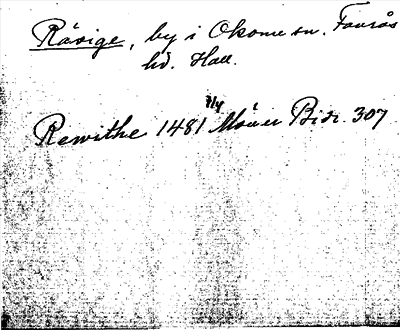 Rävige, by i Okome sn. Faurås
hd. Hall.
Rewithe 1481 Möller Bidr. 307